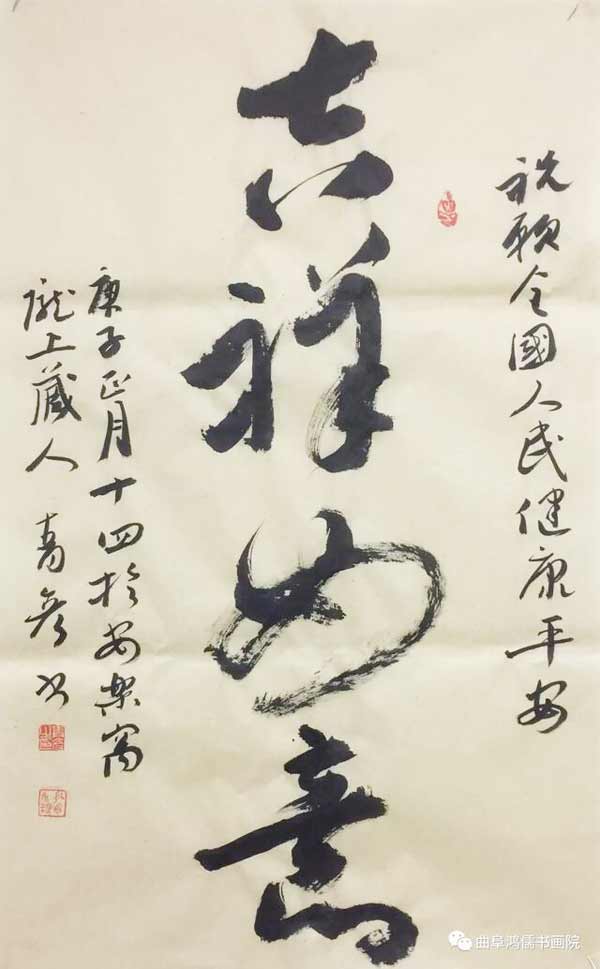 祝願全國人民健康平安
吉祥如意
庚子正月十四於安樂窩
隴上藏人青彦书
曲阜鸿儒书画院